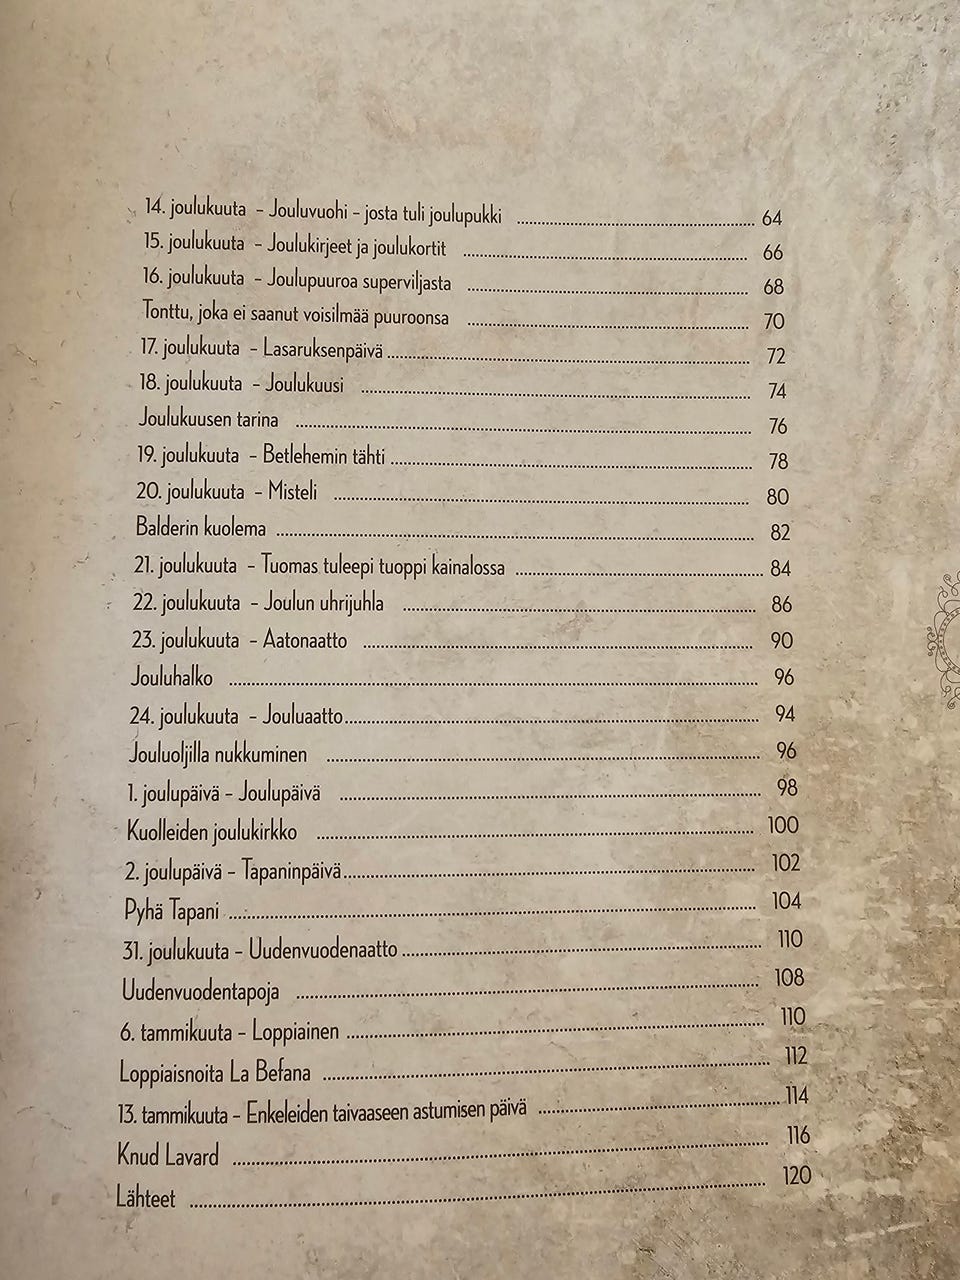 14. joulukuuta – Jouluvuohi – josta tuli joulupukki 64
15. joulukuuta – Joulukirjeet ja joulukortit 66
16. joulukuuta – Joulupuuroa superviljasta 68
Tonttu, joka ei saanut voisilmää puuroonsa 70
17. joulukuuta – Lasaruksenpäivä 72
18. joulukuuta – Joulukuusi 74
Joulukuusen tarina 76
19. joulukuuta – Betlehemin tähti 78
20. joulukuuta – Misteli 80
Balderin kuolema 82
21. joulukuuta – Tuomas tuleepi tuoppi kainalossa 84
22. joulukuuta – Joulun uhrijuhla 86
23. joulukuuta – Aatonaatto 90
Jouluhalko 96
24. joulukuuta – Jouluaatto 94
Jouluoljilla nukkuminen 96
1. joulupäivä – Joulupäivä 98
Kuolleiden joulukirkko 100
2. joulupäivä – Tapaninpäivä 102
Pyhä Tapani 104
31. joulukuuta – Uudenvuodenaatto 110
Uudenvuodentapoja 108
6. tammikuuta – Loppiainen 110
Loppiaisnoita La Befana 112
13. tammikuuta – Enkeleiden taivaaseen astumisen päivä 114
Knud Lavard 116
Lähteet 120